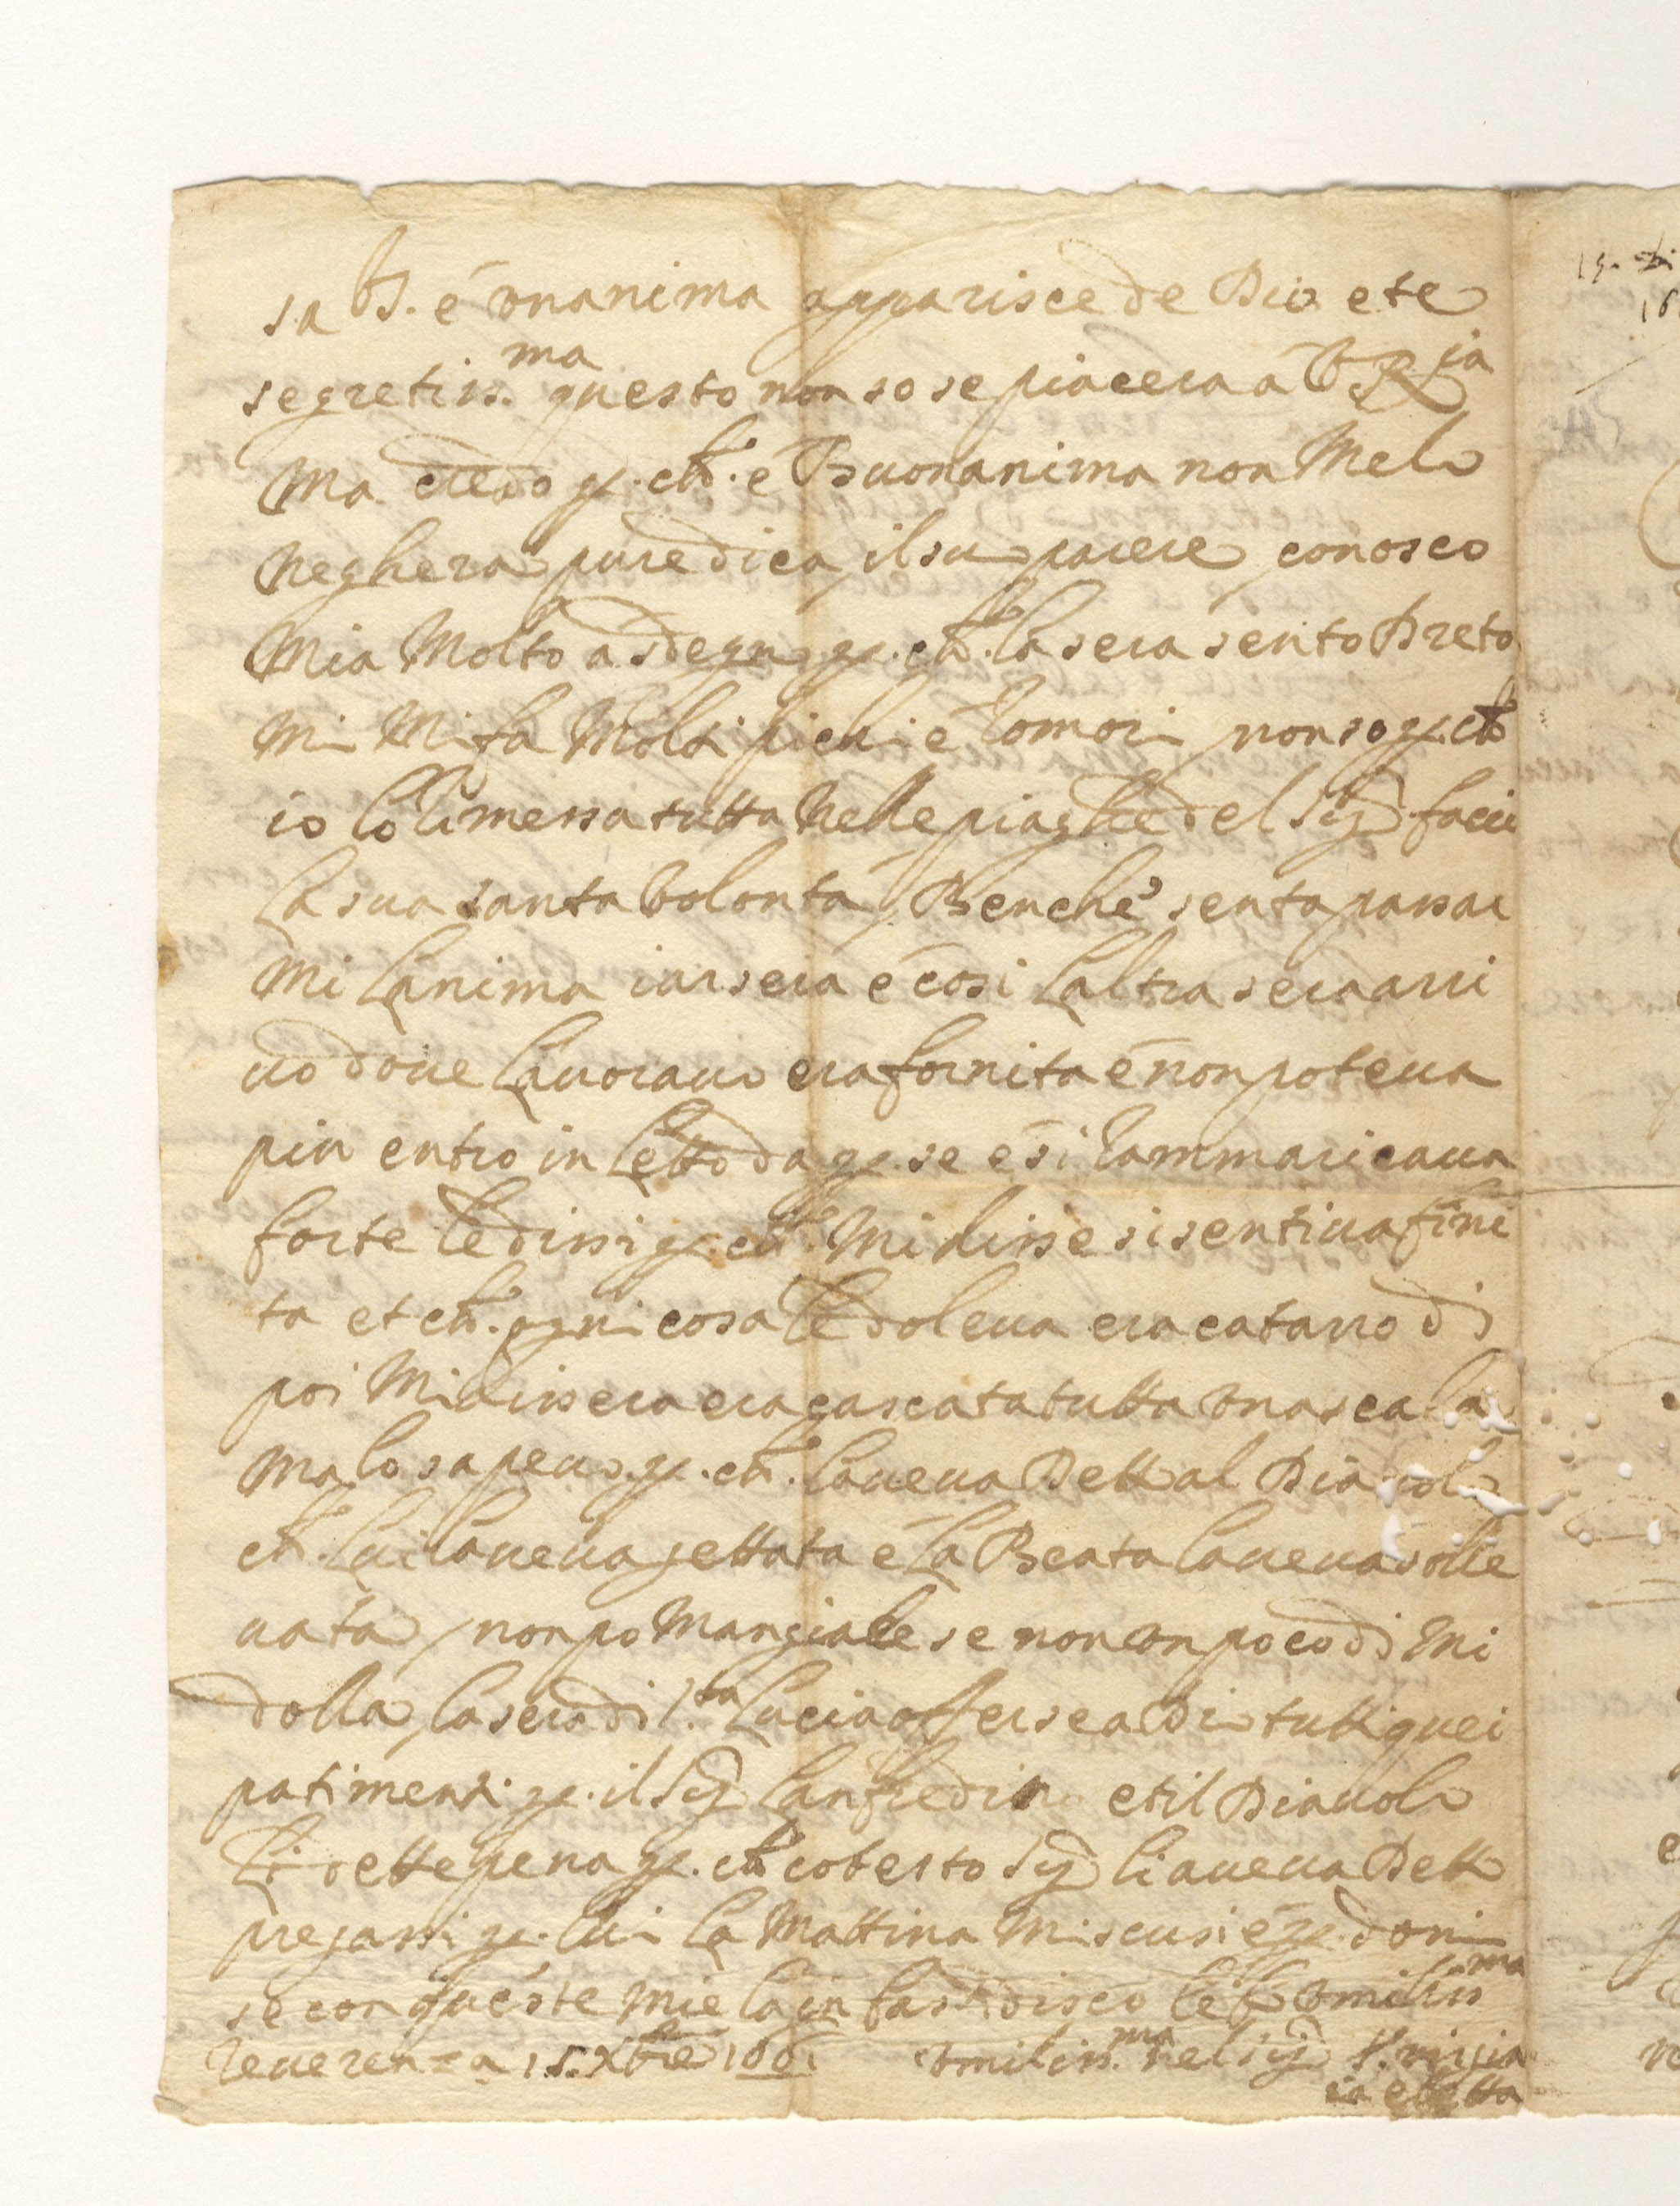 sa B. é vnanima apparisce de Dio e te
segretiss.ma questo non so se piacera a V R ia
Ma credo p. ch. e Buonanima non Melo
neghera pure dica il suo parere conosco
Mia Molto asdegno p. ch. la sera sento Dreto
mi Mi fa Molti fichi e romori non so p. ch
io lo limessa tutta nelle piaghe del Sig facci
la sua santa volonta Benche senta passar
mi lanima iarsera e cosi laltra sera arri
uo doue lauorauo era fornita é non poteua
piu entro in letto da p. se é si rammaricaua
forte le dissi p. ch. Mi disse si sentiua fini
ta et ch. ogni cosa le doleua era catarro di
poi Mi dissera era cascata tutta vna scala
ma lo sapeuo p. ch. laueua Detto al Diauolo
ch. lui laueua gettata é la Beata laueua solle
uata non po Mangiale se non vn poco di Mi
dolla la sera di S.ta Lucia offerse a Dio tutti quei
patimenti p. il Sig Lanfredin et il Diauolo
li dette pena p. ch. cotesto Sig li aueua Detto
pregassi p. lui la Mattina Mi scusi é p. doni
se con queste mie la in fastidisco le fo vmiliss ma
reuerenza 15. Xbre 16
vmiliss. ma nel sig S. virgia
ia eletta
15. di
16